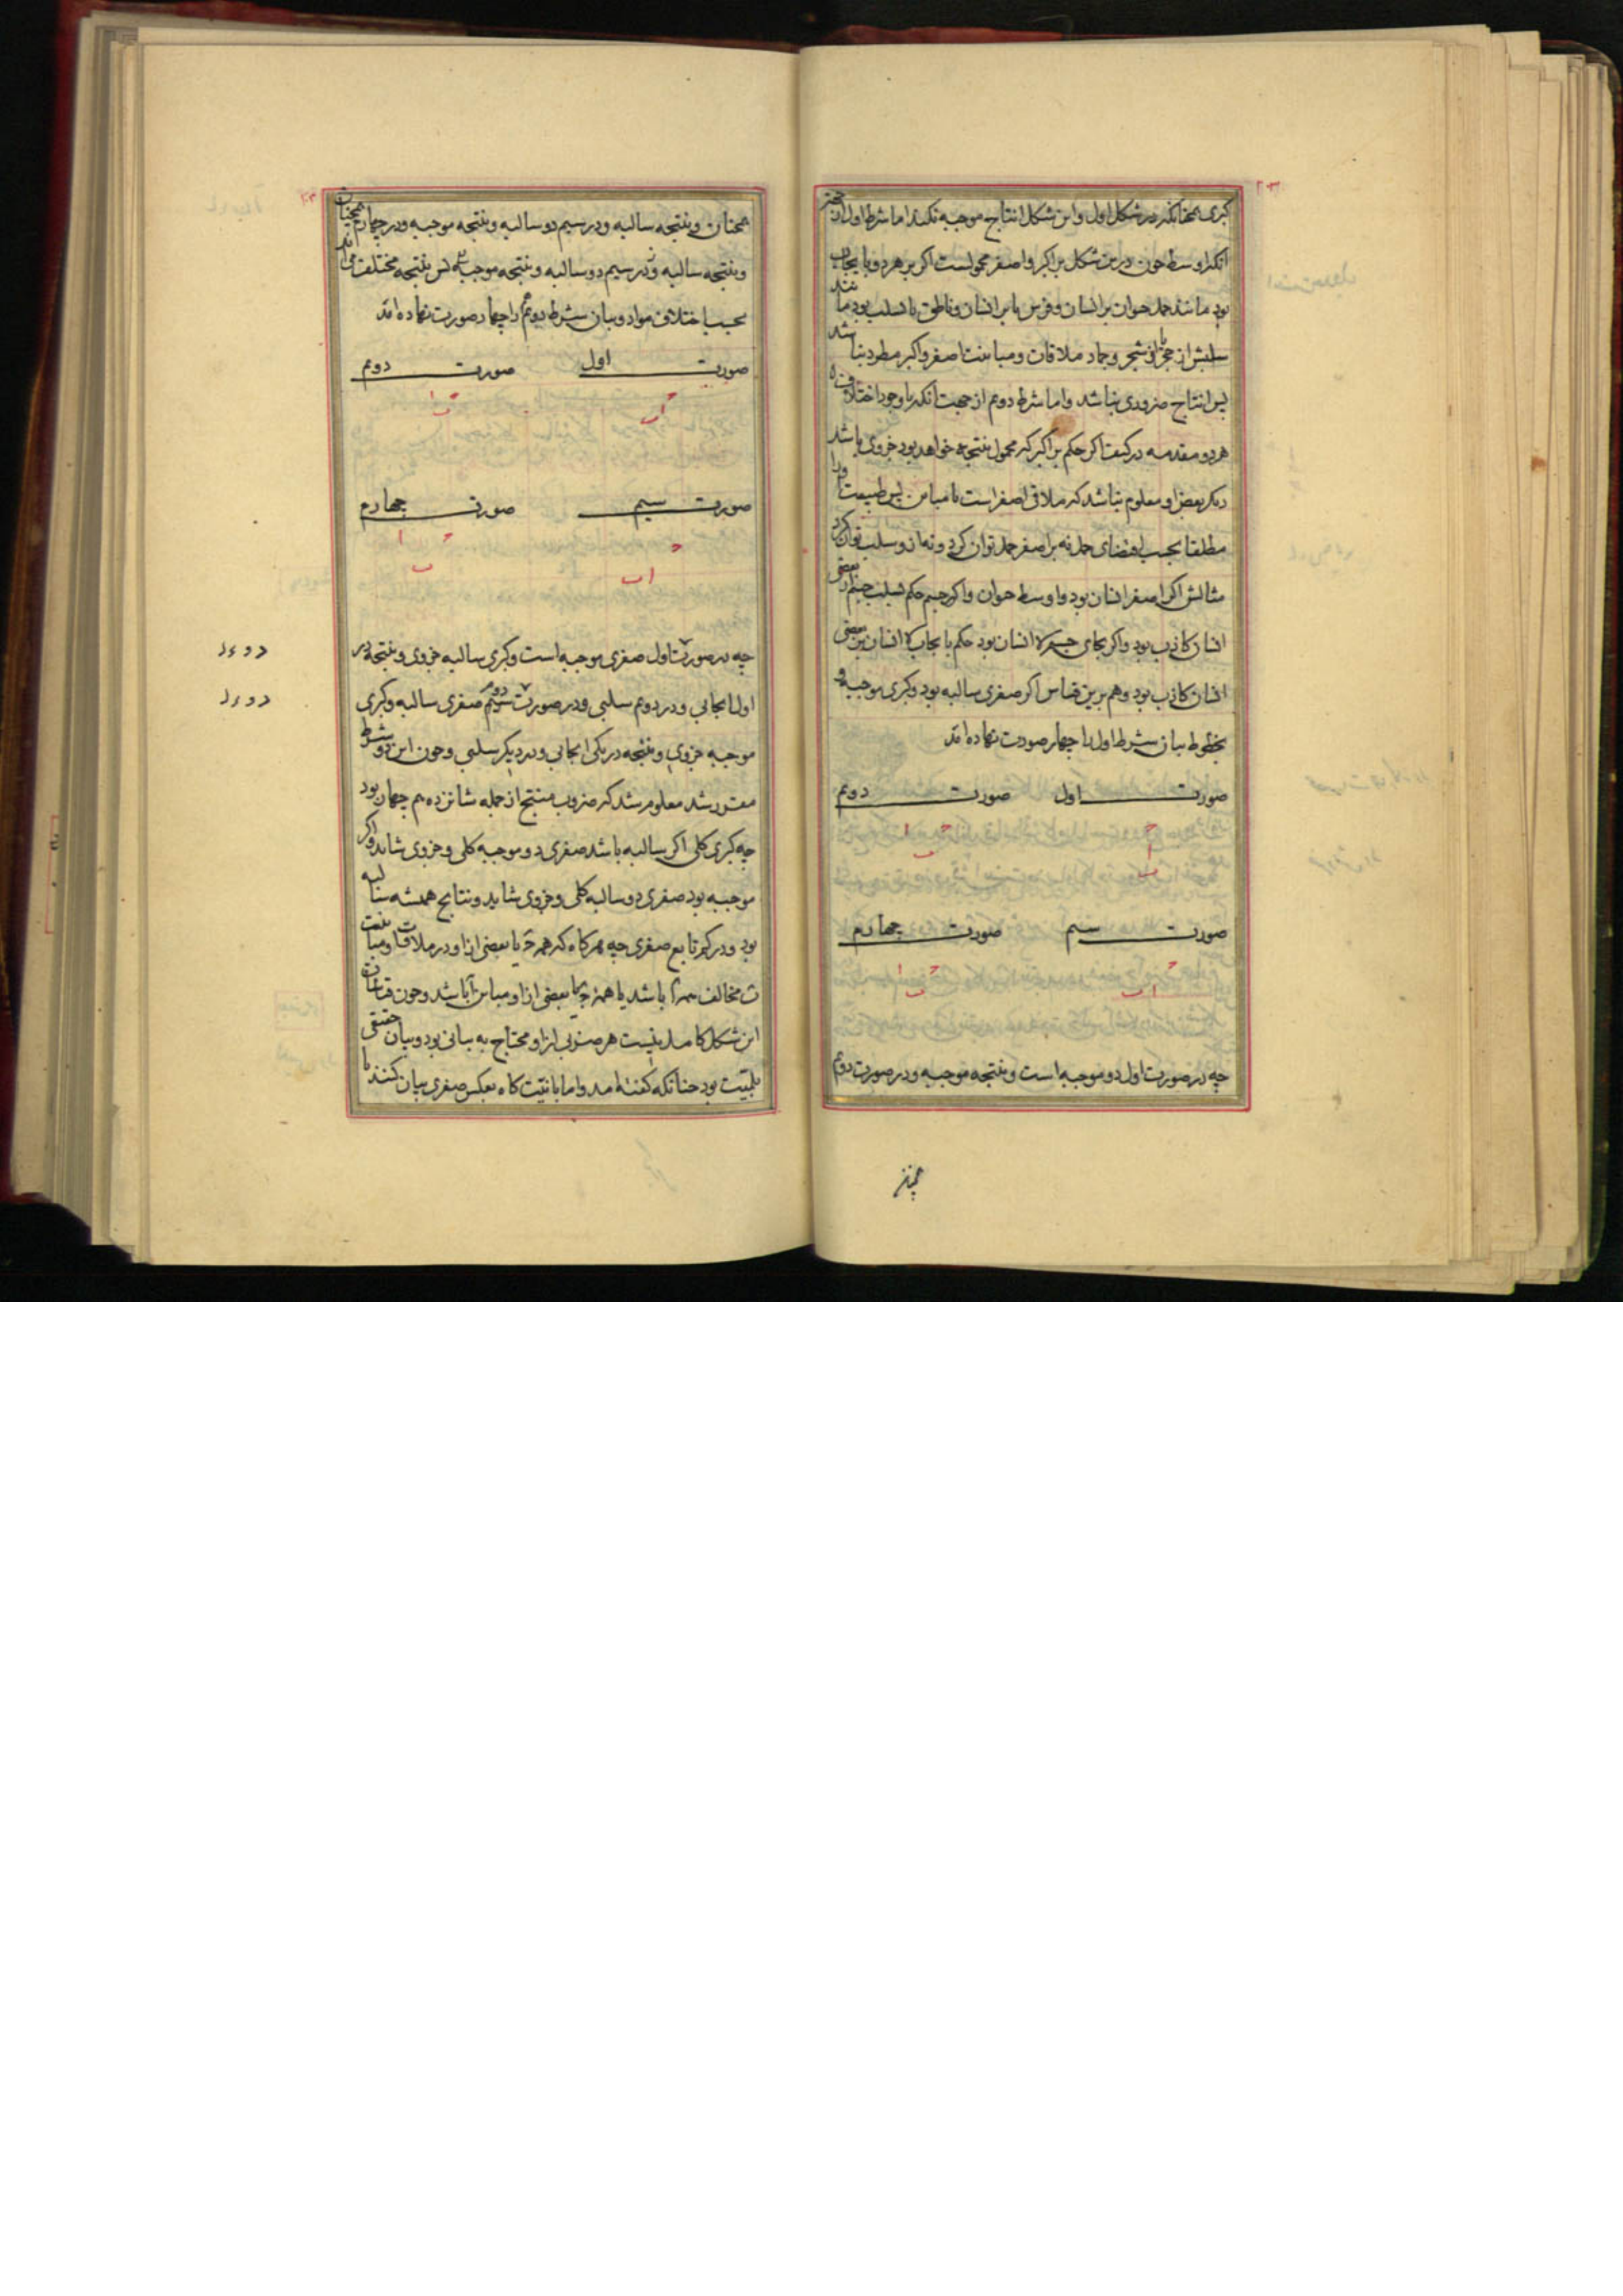 کبری همچنانکه در شکل اول و این شکل انتاج موجبه نکند اما شرط اول از جهتر
آنکه اوسط چون درین شکل بر اکبر و اصغر محمولست اکر بر هر دو بایجاب
بود مانند حمل حیوان بر انسان و فرس یا بر انسان و ناطق یا بسلب بود مانند
سلبش از حجر و شجر و جماد ملاقات و مباینت اصغر و اکبر مطرد نباشد
پس انتاج ضروری نباشد و اما شرط دوم از جهت آنکه با وجود اختلاف
هر دو مقدمه در کیفیت اکر حکم بر اکبر که محمول نتیجه خواهد بود جزوی باشد
دیکر بعض او معلوم نباشد که ملاقی اصغر است یا مباین پس طبیعت او را
مطلقا بحسب اقتضای حمل نه بر اصغر حمل توان کرد و نه از و سلب توان کرد
مثالش اکر اصغر انسان بود و اوسط حیوان و اکبر جسم حکم بسلب جسم از بعضی
انسان کاذب بود و اکر بجای جسم لا انسان بود حکم بایجاب لا انسان بر بعضی
انسان کاذب بود و هم برین قیاس اکر صغری سالبه بود و کبری موجبه و
بخطوط بیان شرط اول را چهار صورت نهاده اند
صورت اول صورت دوم
ج ج ا
ا ب
ب
صورت سیم صورت چهارم
ج ج ا
ا ب ب
چه در صورت اول دو موجبه است و نتیجه موجبه و در صورت دوم
همچنان و نتیجه سالبه و در سیم دو سالبه و نتیجه موجبه و در چهارم همچنان
و نتیجه سالبه و در سیم دو سالبه و نتیجه موجبه پس نتیجه مختلف می آید
بحسب اختلاف مواد و بیان شرط دوم را چهار صورت نهاده اند
صورت اول صورت دوم
ج ج ا
ا ب ب
صورت سیم صورت چهارم
ج ج ا
ا ب ب
چه در صورت اول صغری موجبه است و کبری سالبه جزوی و نتیجه در
اول ایجابی و در دوم سلبی و در صورت دوم صغری سالبه و کبری
موجبه جزوی و نتیجه در یکی ایجابی و در دیکر سلبی و چون این دو شرط
مقرر شد معلوم شد که ضروب منتج از جمله شانزده هم چهار بود
چه کبری کلی اکر سالبه باشد صغری دو موجبه کلی و جزوی شاید و اکر
موجبه بود صغری دو سالبه کلی و جزوی شاید و نتایج همیشه سالبه
بود و در کم تابع صغری چه هرکاه که همه ج یا بعضی از او در ملاقات و مباینت
ب مخالف همه ا باشد یا همه ج یا بعضی از او مباین ا باشد و چون قیاسات
این شکل کامل نیست هر ضربی از او محتاج به بیانی بود و بیان حقیقی
بلمیّت بود چنانکه کفته امد و اما بانیّت کاه بعکس صغری بیان کنند یا